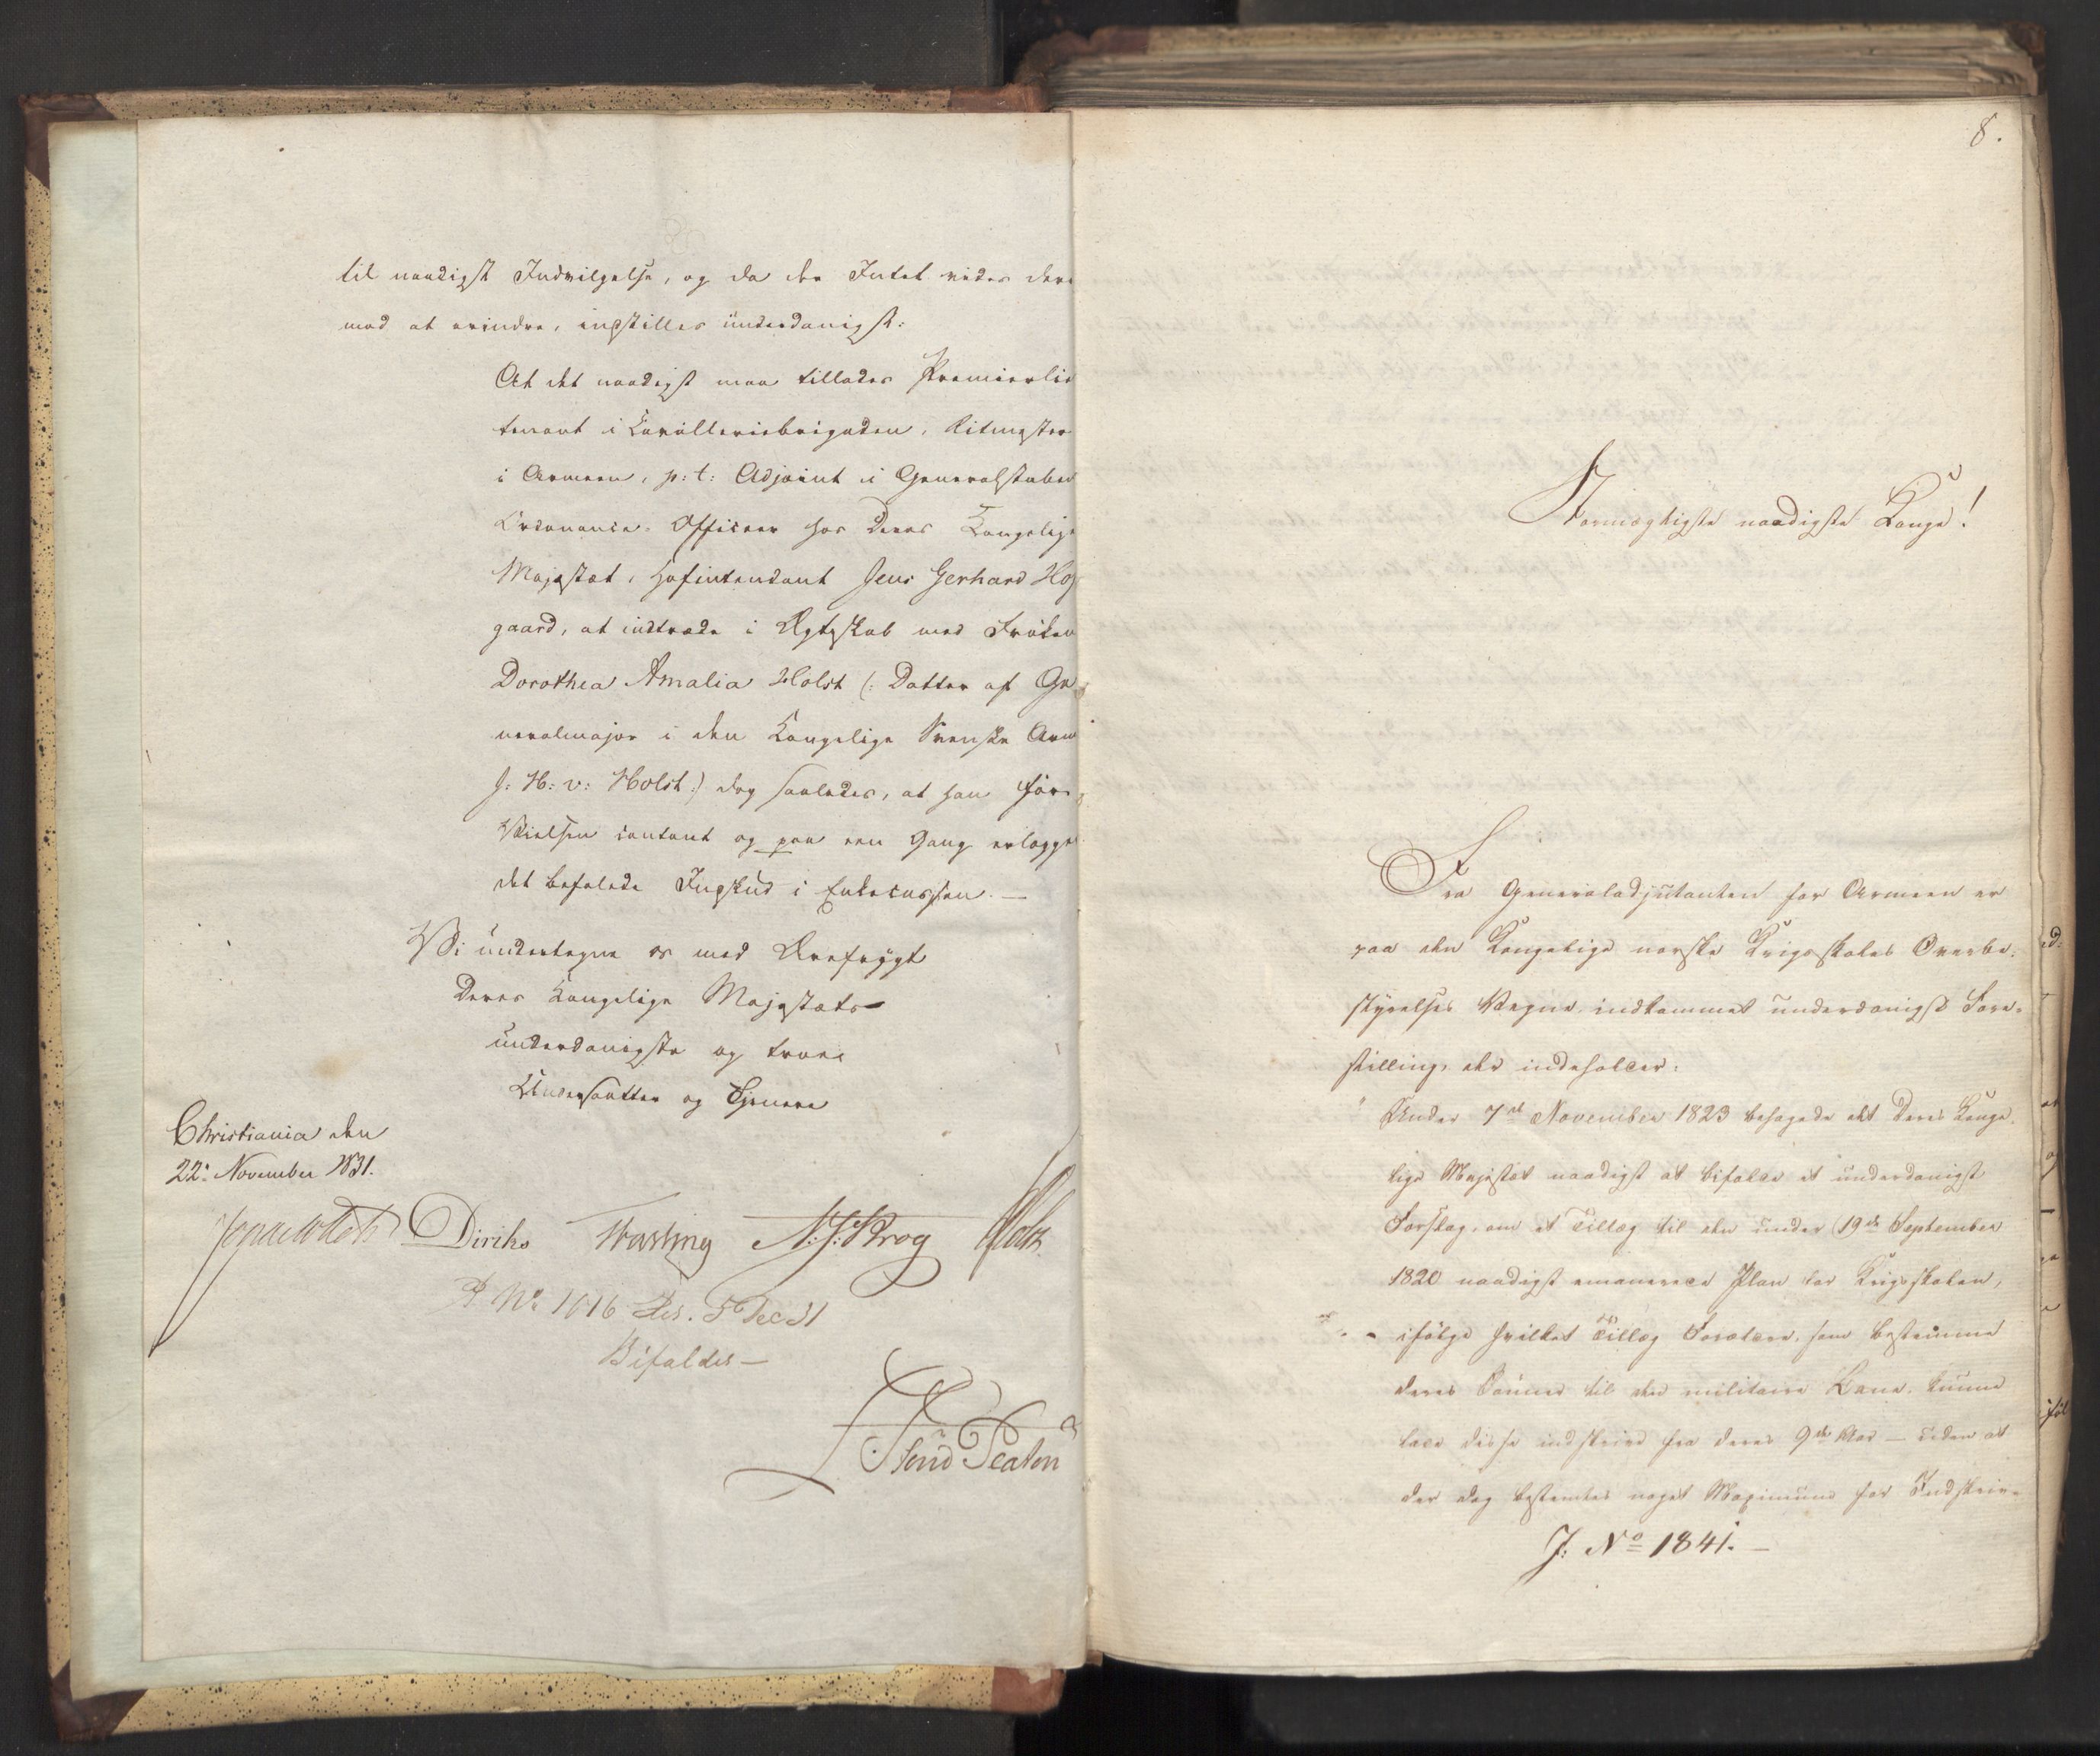 til naadigst Indvilgelse, og da der Intet vides der
mod at erindre, indstilles underdanigst:
At det naadigst maa tillades Premierlie
tenant i Cavalleriebrigaden, Ritmester
i Armeen, p: t: Adjoint i Generalstaben
Ordonance-Officeer hos Deres Kongelige
Majestæt, Hofintendant Jens Gerhard Ho
gaard, at indtræde i Ægteskab med Frøken
Dorothea Amalia Holst (: Datter af Ge
neralmajor i den Kongelige Svenske Arm
J: H: v: Holst :) dog saaledes, at han før
Vielsen contant og paa een Gang erlægge
det befalede Indskud i Enkecassen. —
Vi undertegne os med Ærefrygt
Deres Kongelige Majestæts
underdanigste og troe
Undersaatter og Tjenere
Christiania den
22: November 1831.
Diriks N: J: Krog
R No 1016 Res. 5 Dec 31
Bifaldes —
8.
Stormægtigste naadigste Konge!
Fra Generaladjutanten for Armeen er
paa den Kongelige norske Krigsskoles Overbe-
styrelses Vegne indkommet underdanigst Fore-
stilling, der indeholder:
" Under 7de November 1823 behagede det Deres Konge-
lige Majestæt naadigst at bifalde et underdanigst
Forslag, om et Tillæg til den under 19de September
1820 naadigst emanerede Plan for Krigsskolen,
ifølge hvilket Tillæg Forældre, som bestemme
deres Sønner til den militaire Bane, kunne
lade disse indskrive fra deres 9de Aar — uden at
der dog bestemtes noget Maximum for Indskriv-
J: No 1841. —